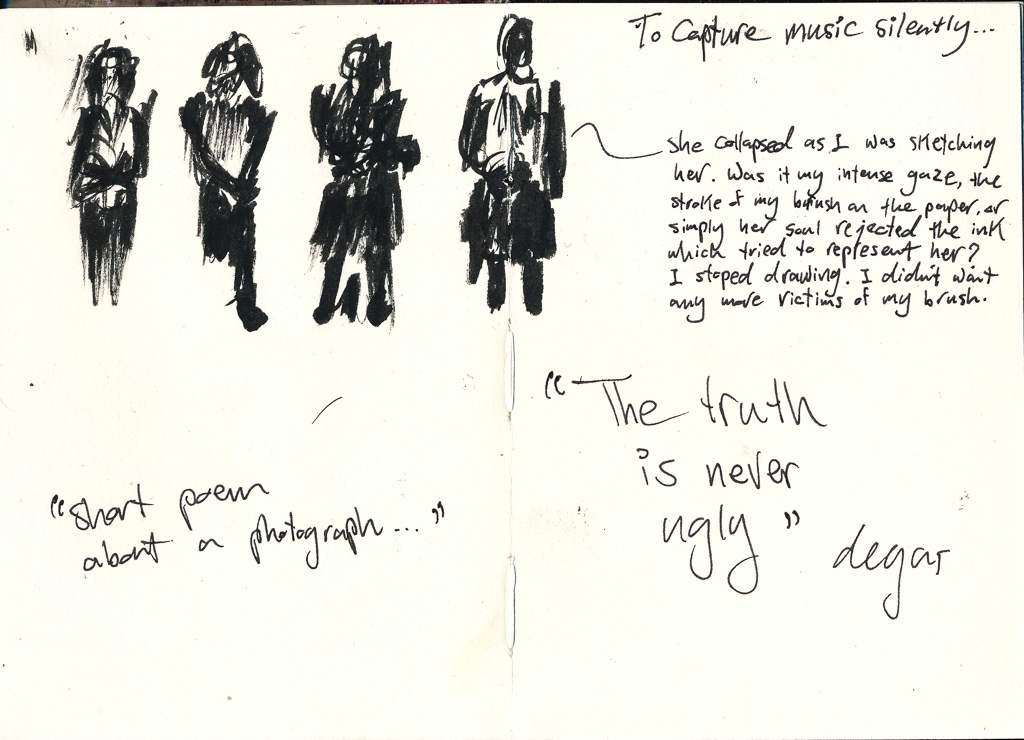 To Capture music silently...
She collapsed as I was sketching
her. Was it my intense gaze, the
stroke of my brush on the paper, or
simply her soul rejected the ink
which tried to represent her?
I stoped drawing. I didn't want
any more victims of my brush.
"short poem
about a photograph..."
"The truth
is never
ugly" degas